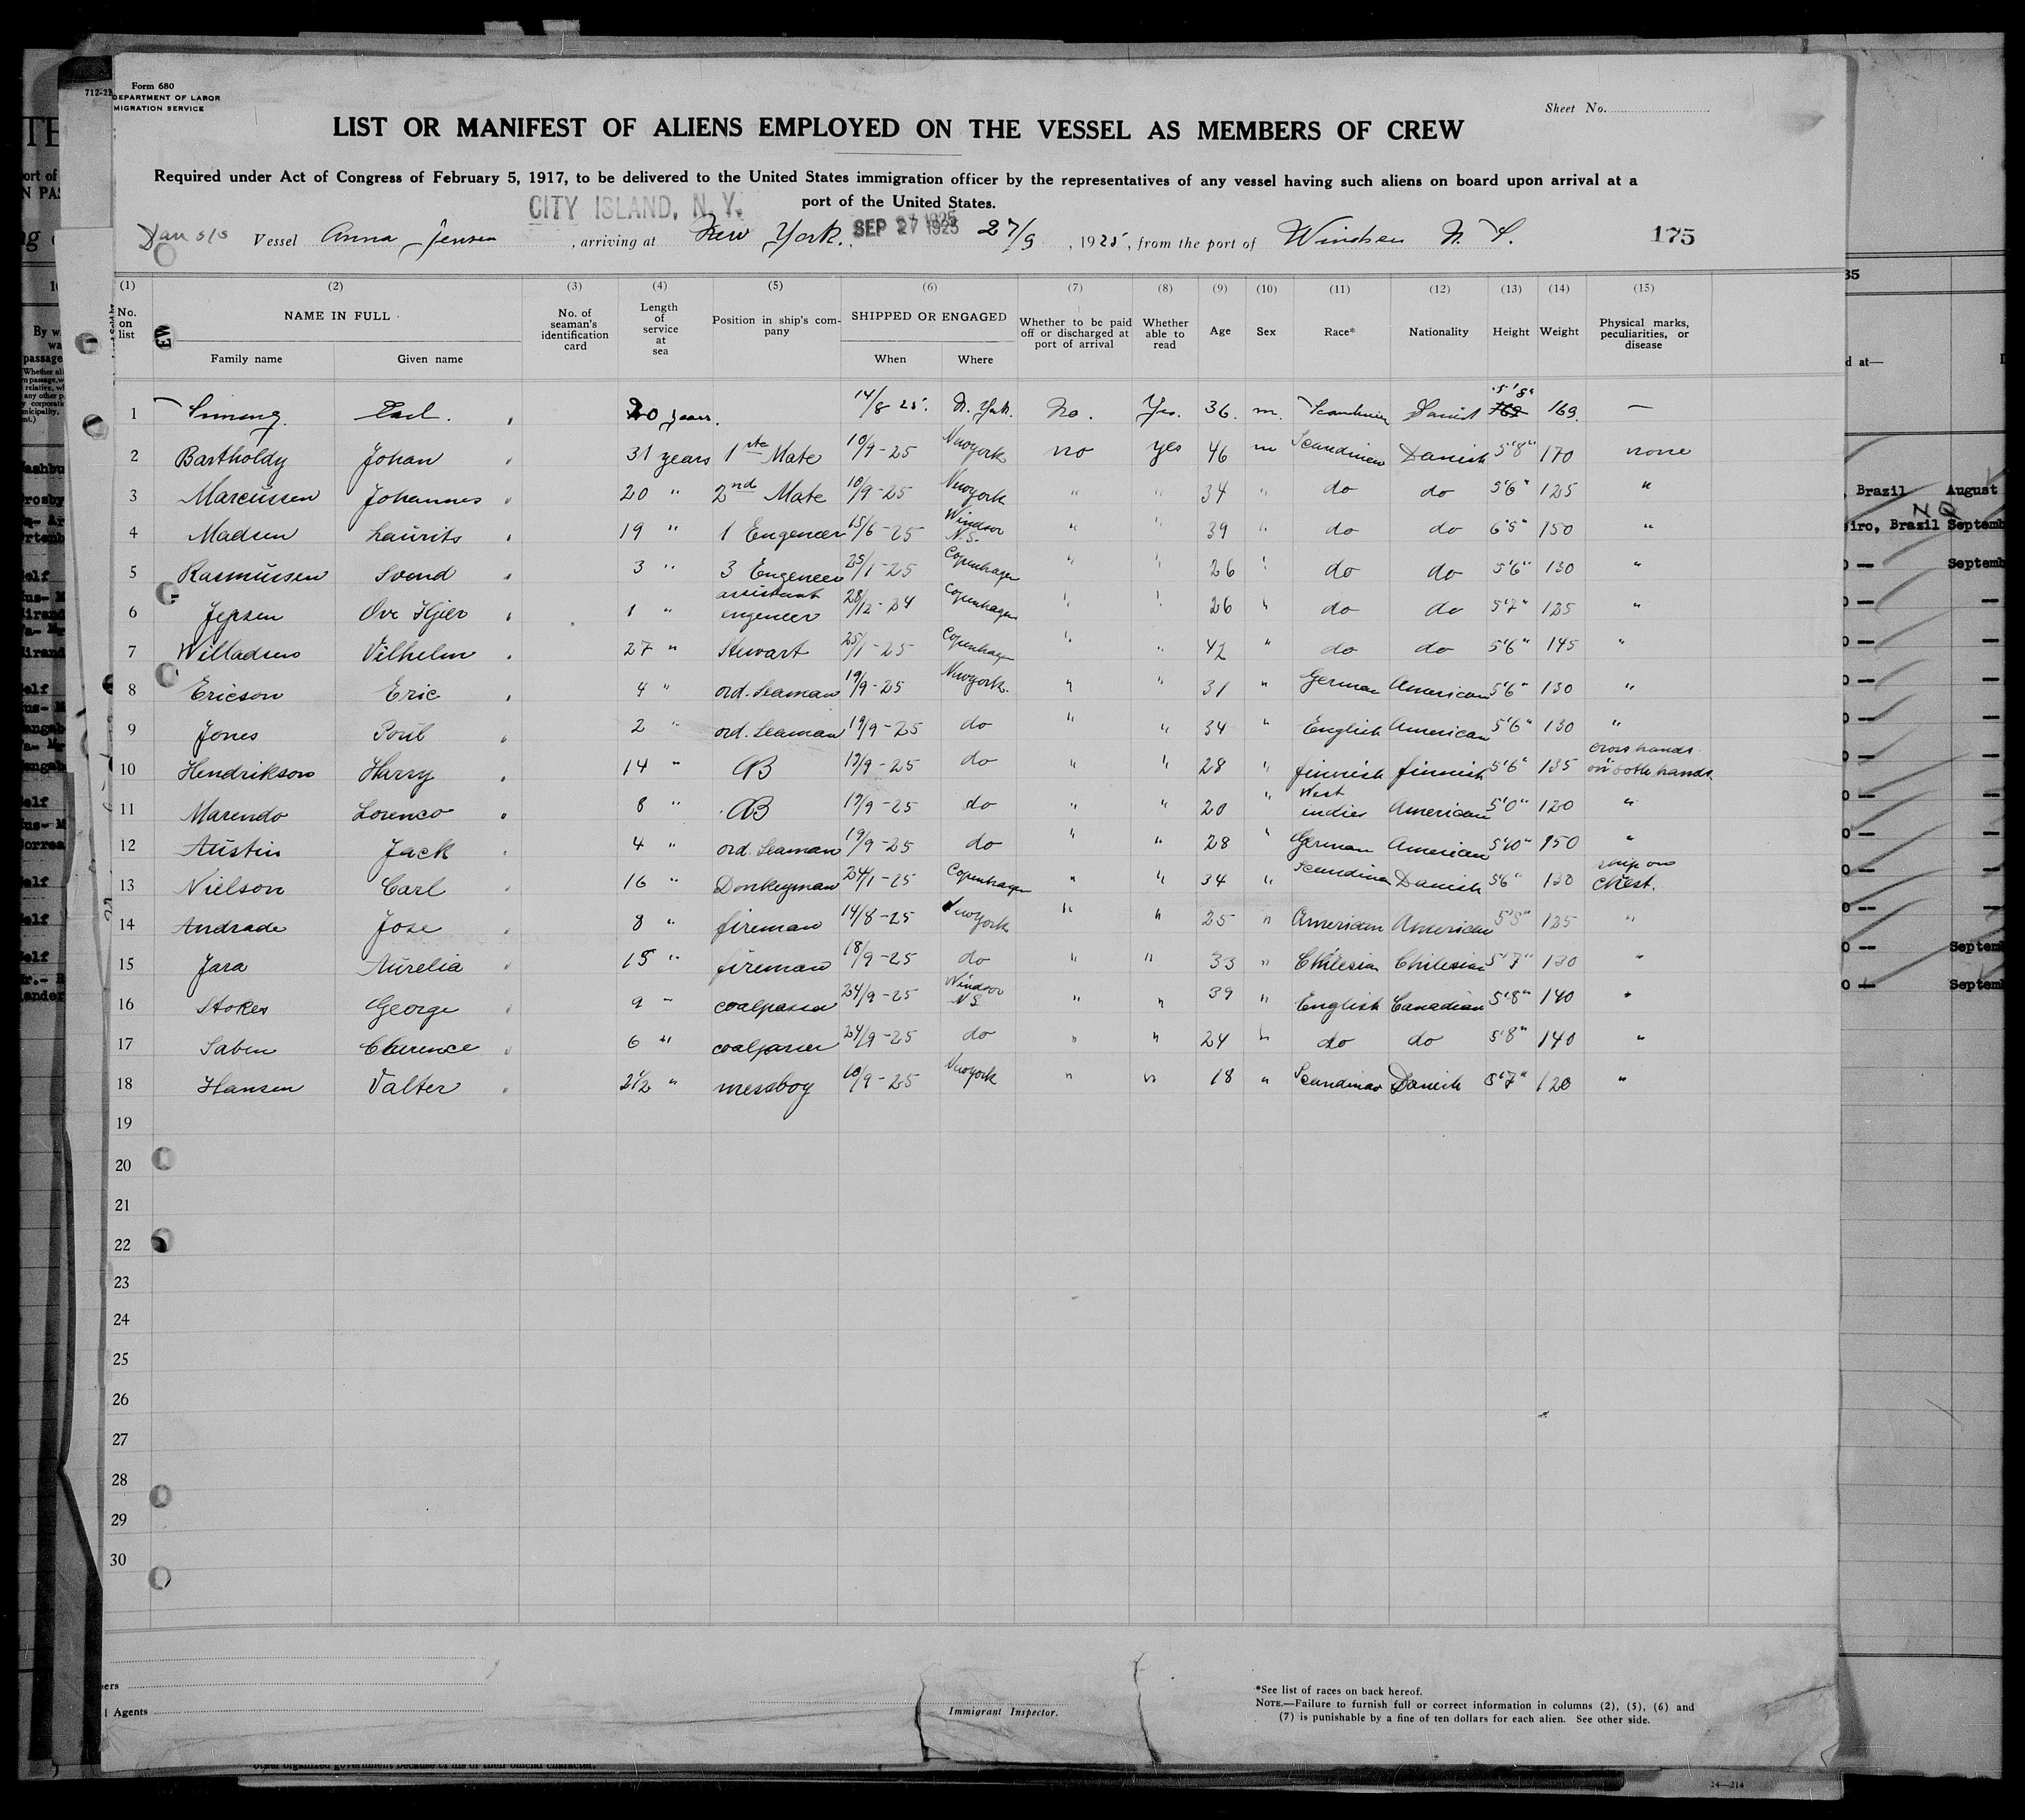 Form 680
712-21
DEPARTMENT OF LABOR
MIGRATION SERVICE
Sheet No.
LIST OR MANIFEST OF ALIENS EMPLOYED ON THE VESSEL AS MEMBERS OF CREW
Required under Act of Congress of February 5, 1917, to be delivered to the United States immigration officer by the representatives of any vessel having such aliens on board upon arrival at a
port of the United States.
CITY ISLAND, N. Y.
Dan s/s Vessel Anna Jensen, arriving at New York. SEP 27 1925 27/9, 1925, from the port of Windsor N. S. 175
(1) (2) (3) (4) (5) (6) (7) (8) (9) (10) (11) (12) (13) (14) (15)
No. on list NAME IN FULL Family name Given name No. of seaman's identification card Length of service at sea Position in ship's company SHIPPED OR ENGAGED When Where Whether to be paid off or discharged at port of arrival Whether able to read Age Sex Race* Nationality Height Weight Physical marks, peculiarities, or disease
1 20 years. 14/8 25. N. York. No. Yes. 36. m. Danish 5'8" 169. —
2 Bartholdy Johan 31 years 1ste Mate 10/9-25 Newyork no yes 46 m Scandinav Danish 5'8" 170 none
3 Marcussen Johannes 20 " 2nd Mate 10/9-25 Newyork " " 34 " do do 5'6" 125 "
4 Madsen Laurits 19 " 1 Engeneer 15/6-25 Windsor N.S. " " 39 " do do 6'5" 150 "
5 Rasmussen Svend 3 " 3 Engeneer 25/1-25 Copenhagen " " 26 " do do 5'6" 130 "
6 Jepsen Ove Kjer 1 " assistant engeneer 28/12-24 Copenhagen " " 26 " do do 5'7" 135 "
7 Willadsen Vilhelm 27 " Stewart 25/1-25 Copenhagen " " 42 " do do 5'6" 145 "
8 Ericson Eric 4 " ord. Seaman 19/9-25 Newyork. " " 31 " German American 5'6" 130 "
9 Jones Poul 2 " ord. Seaman 19/9-25 do " " 34 " English American 5'6" 130 "
10 Hendrikson Harry 14 " AB 19/9-25 do " " 28 " finnish finnish 5'6" 135 cross hands on both hands
11 Marendo Lorenco 8 " AB 19/9-25 do " " 20 " West indies American 5'0" 120 "
12 Austin Jack 4 " ord. Seaman 19/9-25 do " " 28 " German American 5'10" 150 "
13 Nielson Carl 16 " Donkeyman 24/1-25 Copenhagen " " 34 " Scandinav Danish 5'6" 130 on chest.
14 Andrade Jose 8 " fireman 14/8-25 Newyork " " 25 " American American 5'5" 135 "
15 Jara Aurelia 15 " fireman 18/9-25 do " " 33 " Chilesian Chilesian 5'7" 130 "
16 Stokes George 9 " coalpasser 24/9-25 Windsor N.S. " " 39 " English Canadian 5'8" 140 "
17 Saben Clarence 6 " coalpasser 24/9-25 do " " 24 " do do 5'8" 140 "
18 Hansen Valter 2 1/2 " messboy 10/9-25 Newyork " " 18 " Scandinav Danish 5'7" 120 "
19
20
21
22
23
24
25
26
27
28
29
30
Agents
Immigrant Inspector.
*See list of races on back hereof.
NOTE.—Failure to furnish full or correct information in columns (2), (5), (6) and
(7) is punishable by a fine of ten dollars for each alien. See other side.
14—214